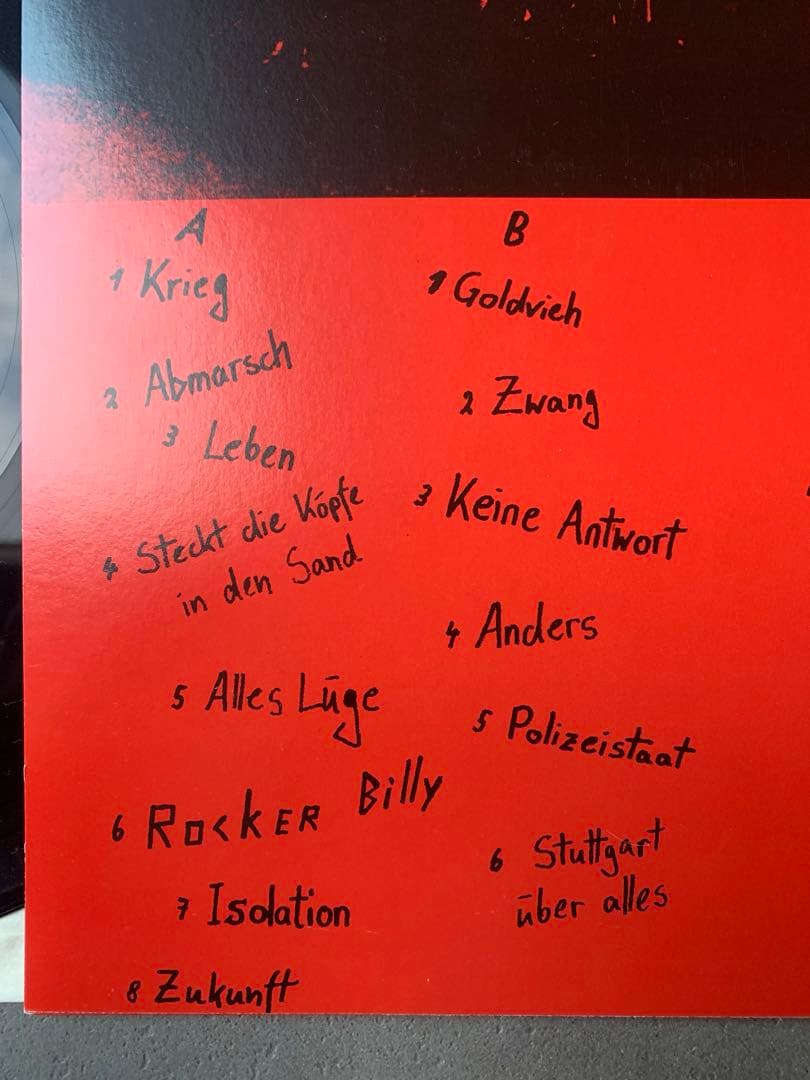 A
1 Krieg
2 Abmarsch
3 Leben
4 Steckt die Köpfe
in den Sand
5 Alles Lüge
6 ROCKER Billy
7 Isolation
8 Zukunft
B
1 Goldvieh
2 Zwang
3 Keine Antwort
4 Anders
5 Polizeistaat
6 Stuttgart
über alles